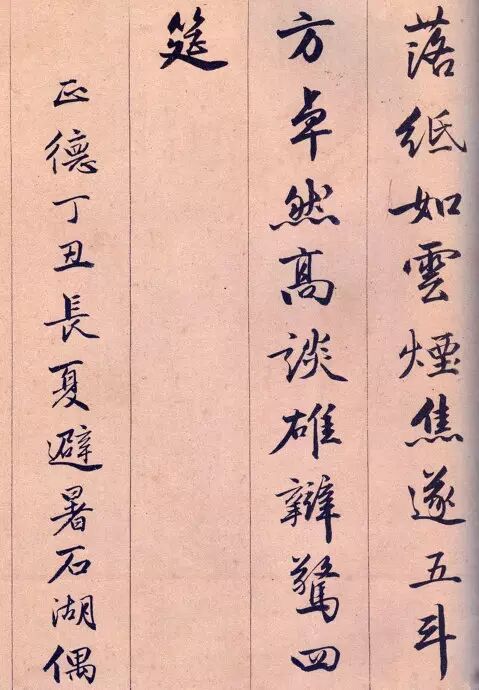 落紙如雲煙焦遂五斗
方卓然高談雄辯驚四
筵
正德丁丑長夏避暑石湖偶